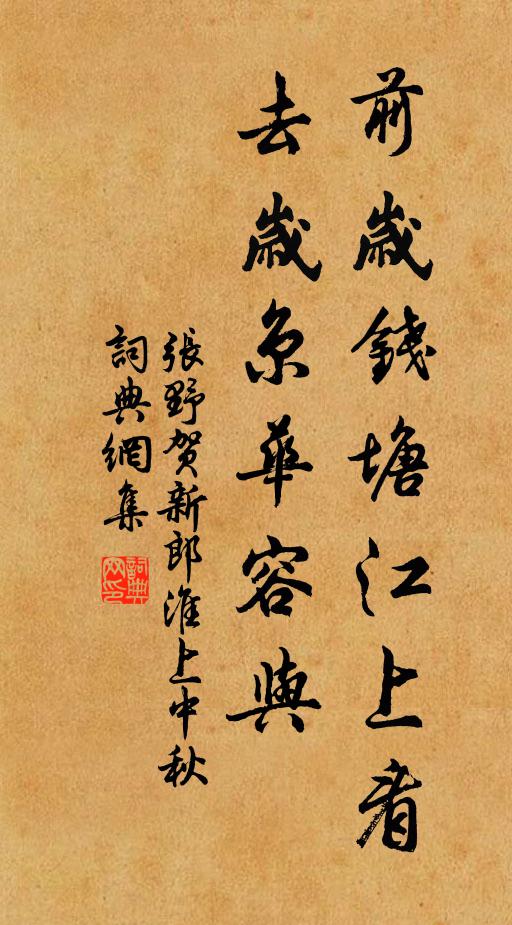 前歲錢塘江上看
去歲京華容與
張野賀新郎淮上中秋
詞典網集
詞典
网印